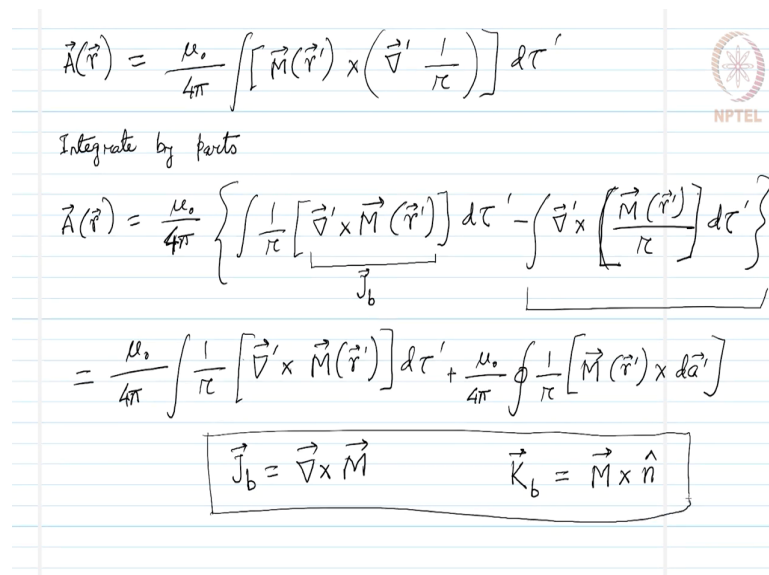 A⃗(r⃗) = μ₀/4π ∫[M⃗(r⃗′) × (∇⃗′ 1/r)] dτ′
NPTEL
Integrate by parts
A⃗(r⃗) = μ₀/4π {∫ 1/r [∇⃗′ × M⃗(r⃗′)] dτ′ − ∫ ∇⃗′ × [M⃗(r⃗′)/r] dτ′}
J⃗_b
= μ₀/4π ∫ 1/r [∇⃗′ × M⃗(r⃗′)] dτ′ + μ₀/4π ∮ 1/r [M⃗(r⃗′) × da⃗′]
J⃗_b = ∇⃗ × M⃗ K⃗_b = M⃗ × n̂